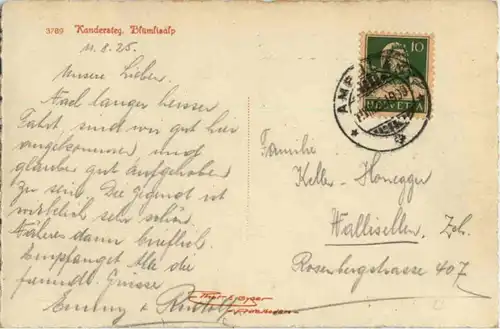 3789 Kandersteg. Blümlisalp
11.8.25.
Unsere Lieben.
Nach langer heisser
Fahrt, sind wir gut hier
angekommen, und
glaube gut aufgehoben
zu sein. Die Gegend ist
wirklich sehr schön.
Näheres dann brieflich.
Empfanget Alle die
freundl. Grüsse
Emmy & Rudolf
10
HELVETIA
Familie
Keller-Honegger
Wallisellen, Zch.
Rosenbergstrasse 407